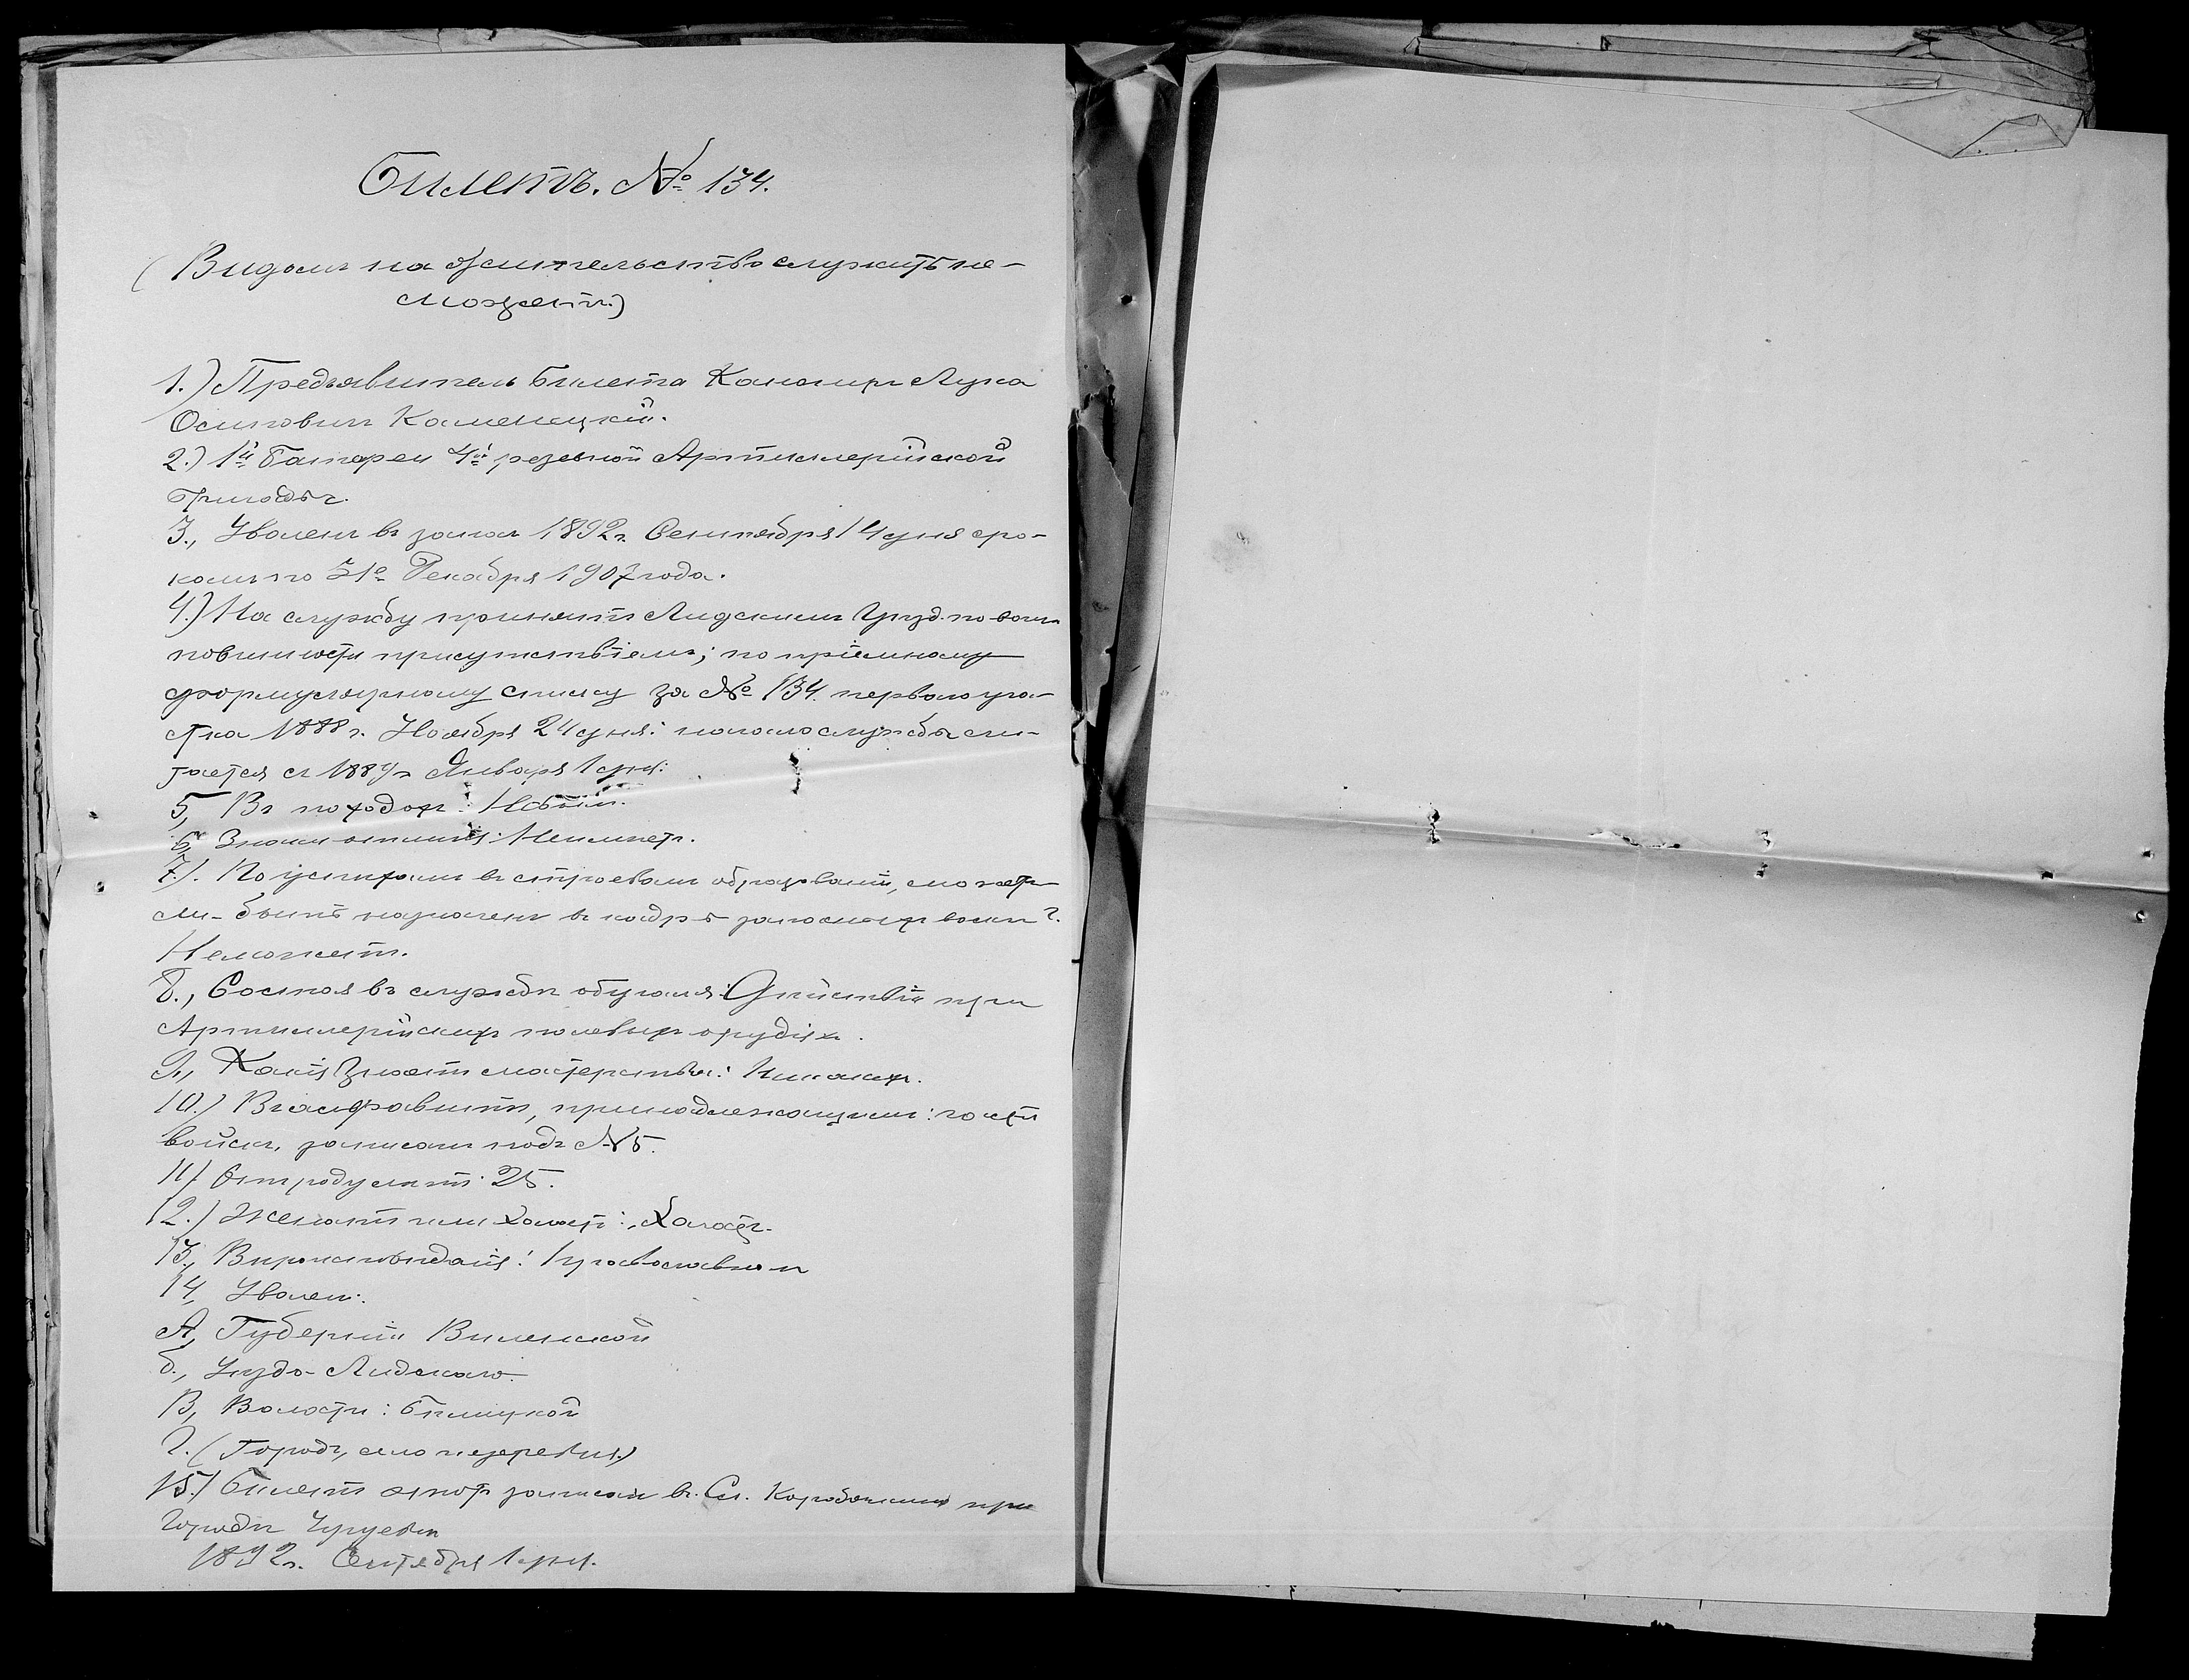 Билетъ. № 134.
(Видомъ на жительство служить не-
можетъ.)
1.) Предъявитель билета Канониръ Лука
Осиповичъ Каменецкій.
2.) 1й Батареи 4й резевной Артиллерійской
бригады.
3., Уволенъ въ запасъ 1892 г. Сентября 14 дня сро-
комъ по 31е Декабря 1907 года.
4.) На службу принятъ Лидскимъ Уезд. по воин
повинности присутствіемъ; по пріемному
формулярному списку за № 134. первого уча-
стка 1888 г. Ноября 24 дня: начало службы счи-
тается съ 1889 г. Января 1 дня.
5, Въ походахъ: Небылъ.
6, Знаки отличія: Неимеетъ.
7.). По успехамъ въ строевомъ образованіи, можетъ
ли- быть назначенъ въ кадръ запасныхъ войскъ?
Неможетъ.
8., Состоя въ службе обучался: Дѣйствію при
Артиллерійскихъ полевыхъ орудіяхъ.
9., Какія знаетъ мастерства: Никакихъ.
10.) Въ алфавитъ, принадлежащемъ: части
войскъ, записанъ подъ № 5.
11) Отъ роду летъ: 25.
12.) Женатъ или холостъ: Холостъ.
13., Вероисповеданія: Православнаго
14, Уволен:
А, Губерніи Виленской
б., Уезда- Лидскаго.
В, Волости: Белицкой
Г. (Городъ, село и деревня.)
15.) Билетъ этотъ записан въ. Сл. при
Городе Чугуеве
1892 г. Сентября 1 дня.